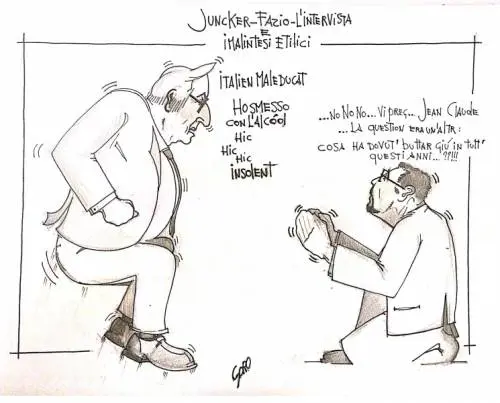 JUNCKER-FAZIO-L'INTERVISTA
E
i MALINTESI ETILICI
ITALIEN MALEDUCAT
HO SMESSO
CON L'ALCÓOL
HIC
HIC
HIC
INSOLENT
...NO NO NO... VI PREG... JEAN CLAUDE
...LA QUESTION ERA UN'ALTR:
COSA HA DOVUT' BUTTAR GIU' IN TUTT'
QUESTI ANNI...??!!!